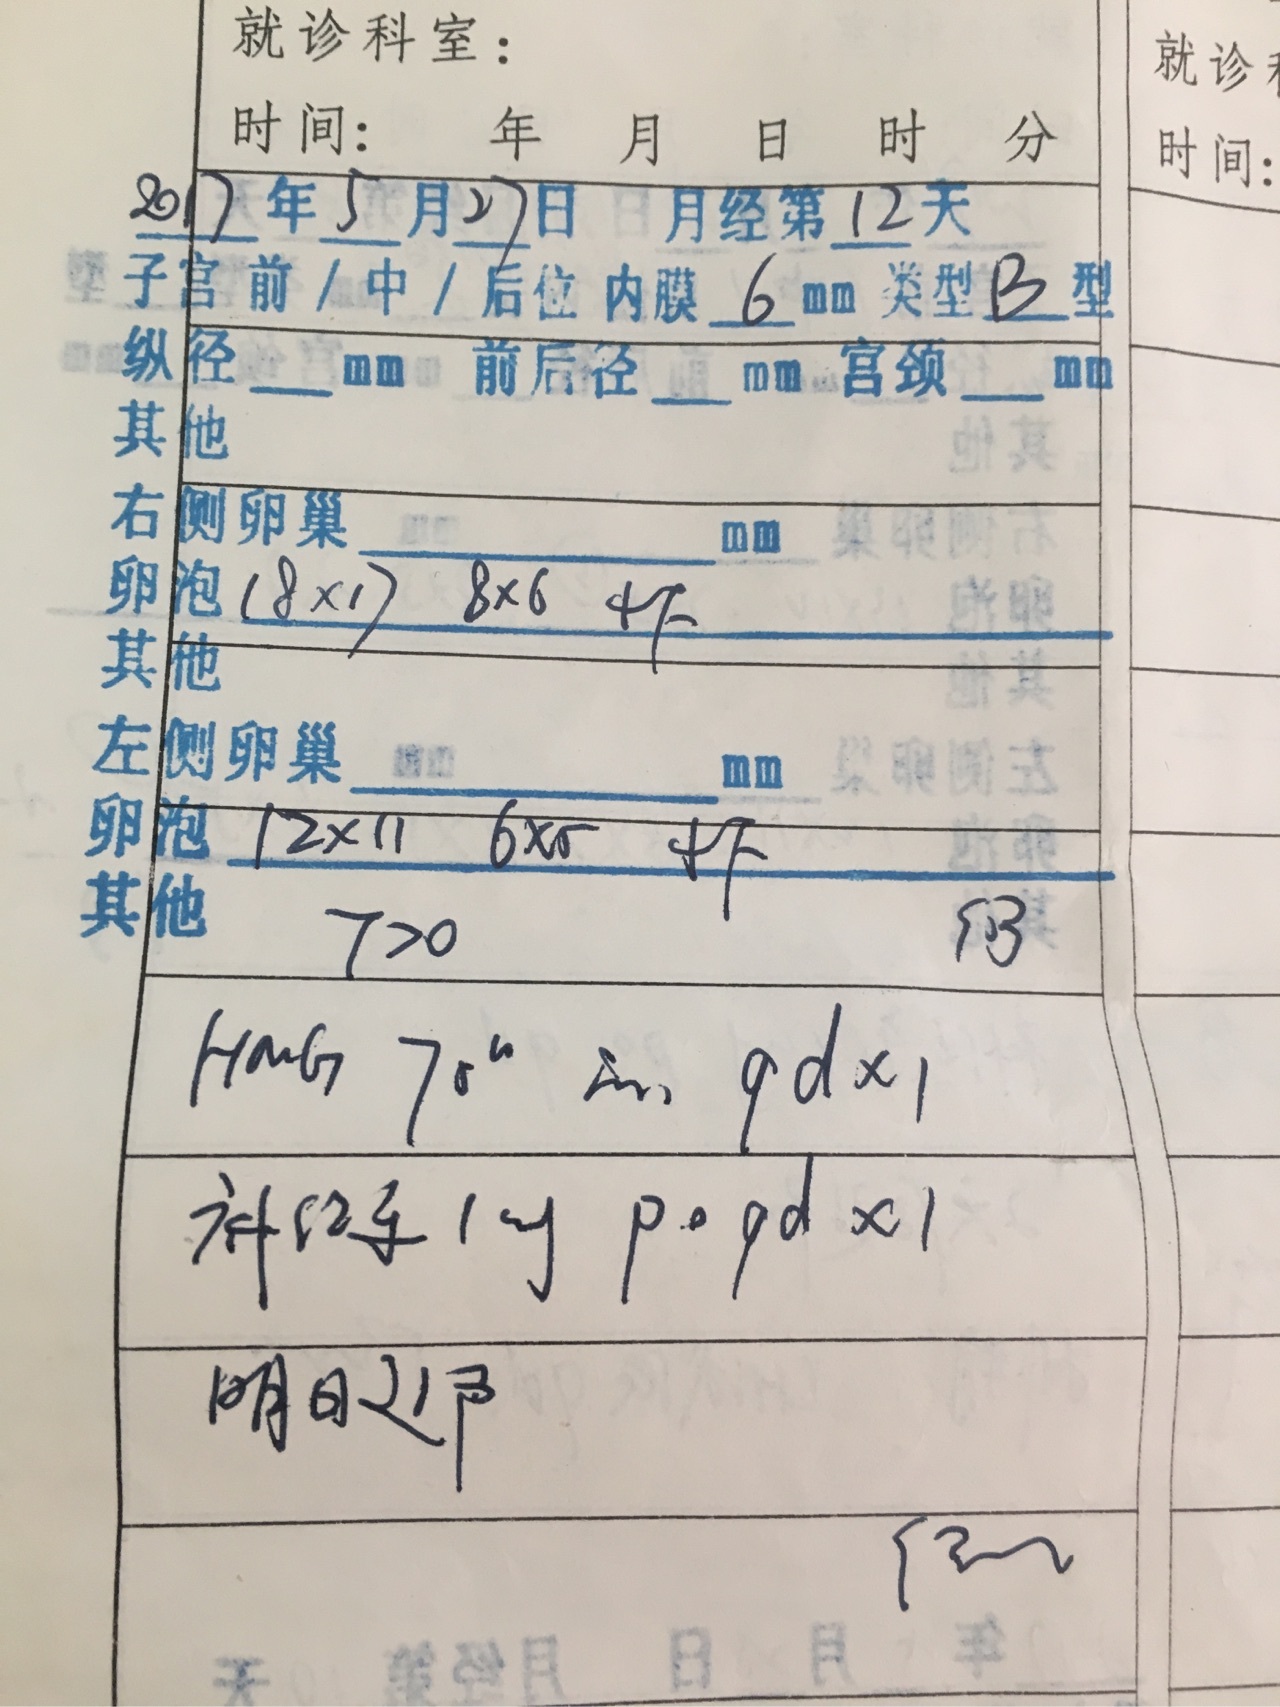 就诊科室:
时间: 年 月 日 时 分
2017年5月27日 月经第12天
子宫前/中/后位 内膜6mm 类型B型
纵径 mm 前后径 mm 宫颈 mm
其他
右侧卵巢 mm
卵泡 18×17 8×6 余下
其他
左侧卵巢 mm
卵泡 12×11 6×5 余下
其他
HMG 75u im qd×1
补佳乐 1mg po qd×1
明日
就诊科
时间:
年 月 日 月经第 天